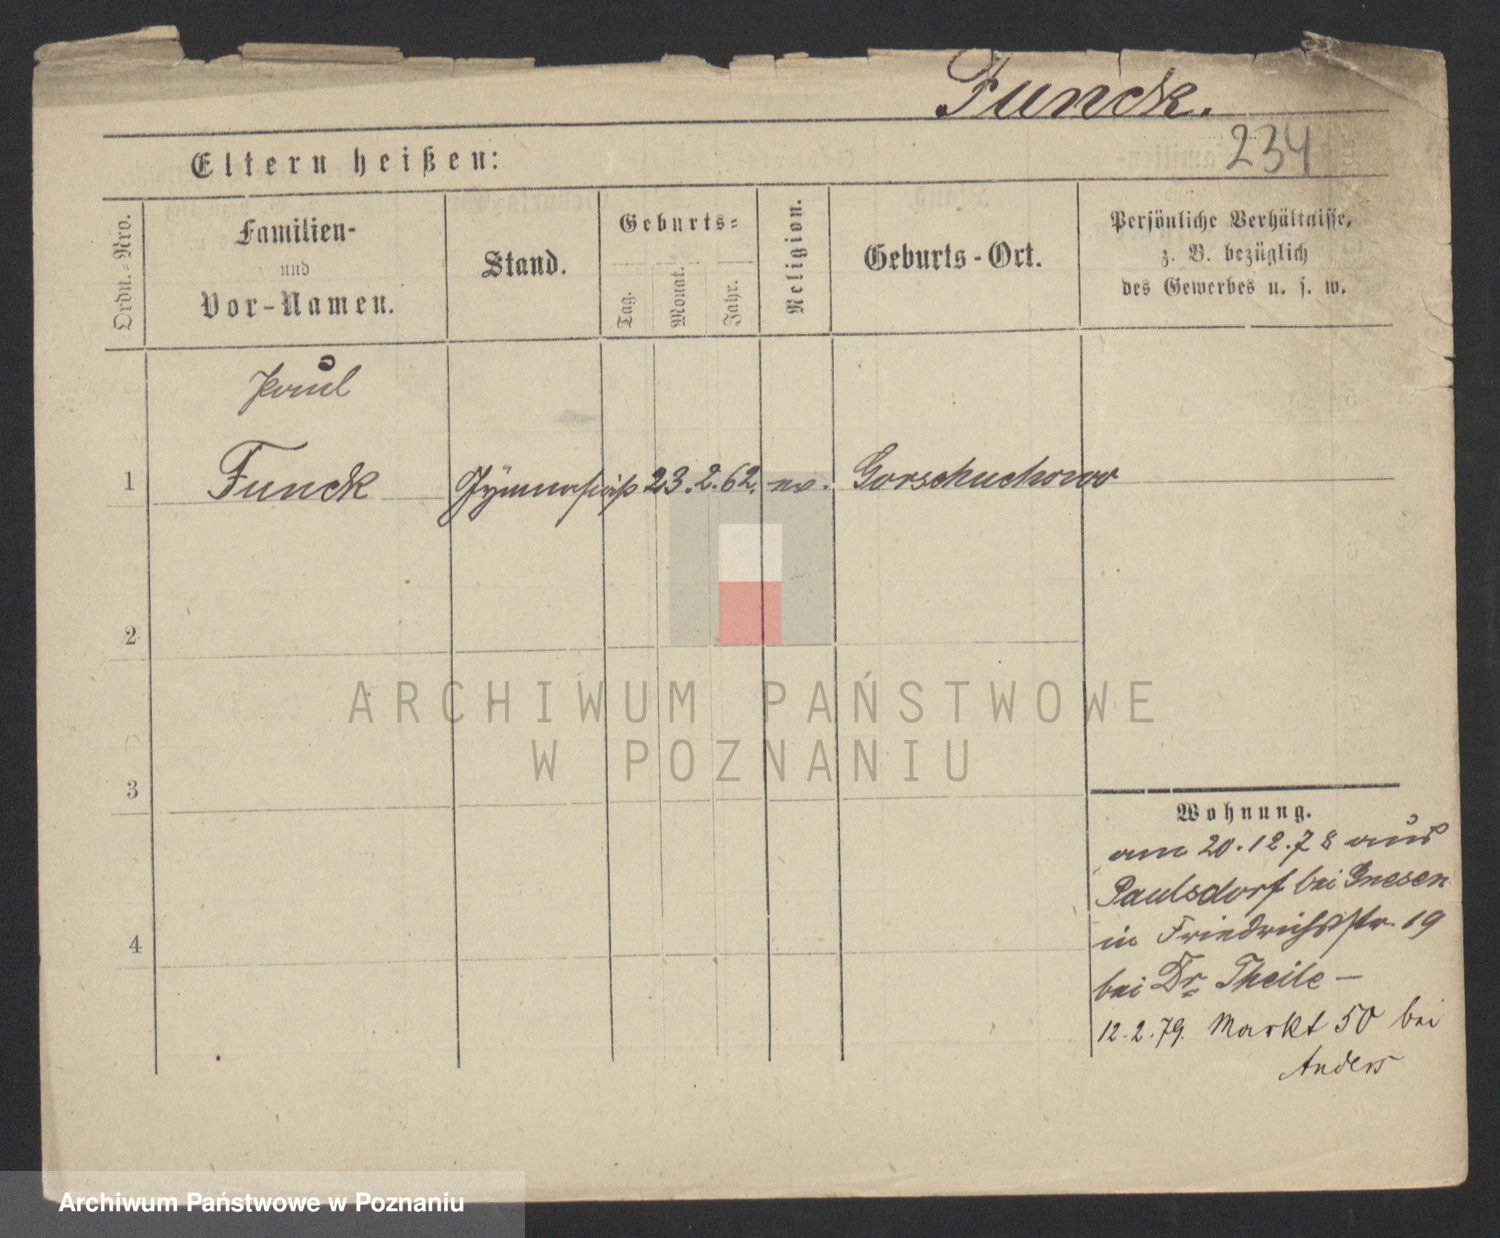 Funck.
234
Eltern heißen:
Ordn.=Nro.
Familien-
und
Vor-Namen.
Stand.
Geburts=
Tag.
Monat.
Jahr.
Religion.
Geburts-Ort.
Persönliche Verhältnisse,
z. B. bezüglich
des Gewerbes u. s. w.
Paul
1 Funck Gymnasiast 23. 2. 62. ev. Gorschuchowo
2
3
4
Wohnung.
am 20.12.78 aus
Paulsdorf bei Gnesen
in Friedrichsstr. 19
bei Dr Theile —
12.2.79. Markt 50 bei
Anders
ARCHIWUM PAŃSTWOWE
W POZNANIU
Archiwum Państwowe w Poznaniu